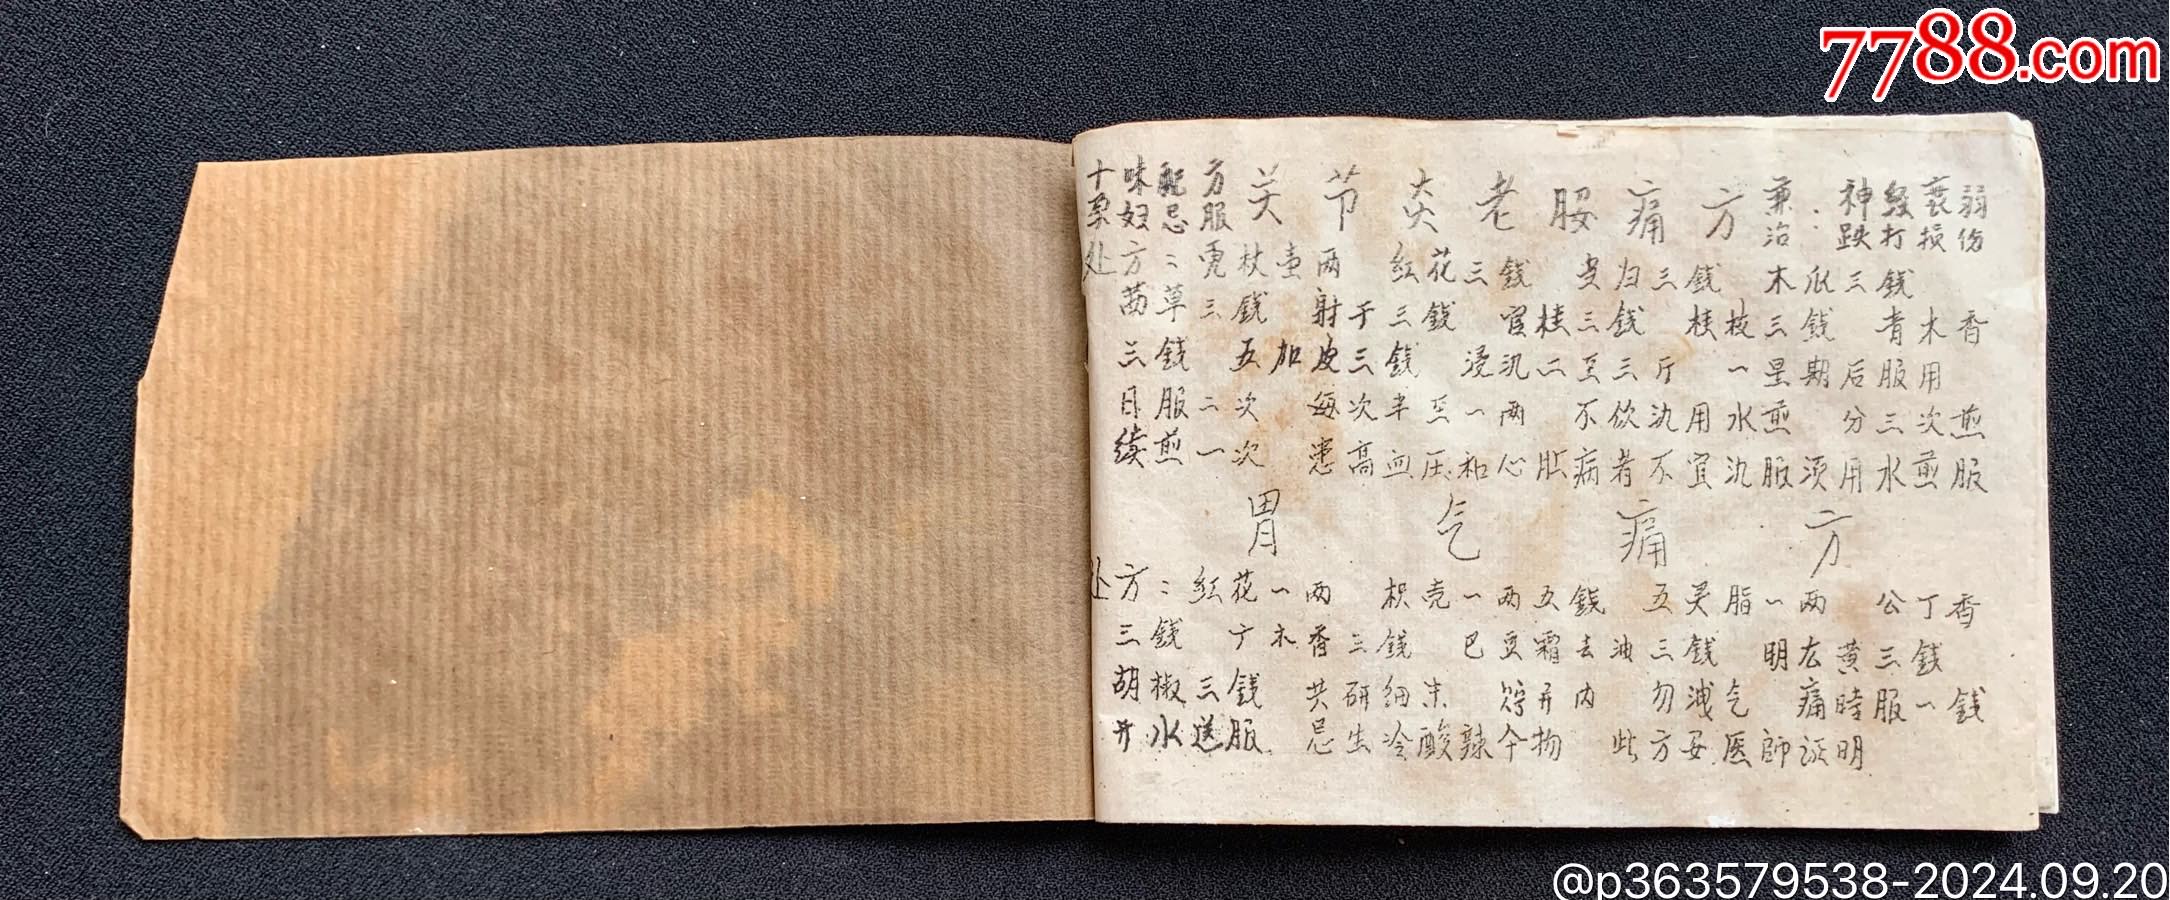 7788.com
十味配方 关节炎老腰痛方 兼治：神经衰弱
孕妇忌服 跌打损伤
处方：虎杖壹两 红花三錢 当归三錢 木瓜三錢
茜草三錢 射干三錢 官桂三錢 桂枝三錢 青木香
三錢 五加皮三錢 浸氿二至三斤 一星期后服用
日服二次 每次半至一两 不饮氿用水煎 分三次煎
续煎一次 患高血压和心脏病者不宜氿服须用水煎服
胃气痛方
处方：红花一两 枳壳一两五錢 五灵脂一两 公丁香
三錢 广木香三錢 巴豆霜去油三錢 明雄黄三錢
胡椒三錢 共研细末 勿洩气 痛時服一錢
开水送服 忌生冷酸辣 物 此方 医師证明
@p363579538-2024.09.20